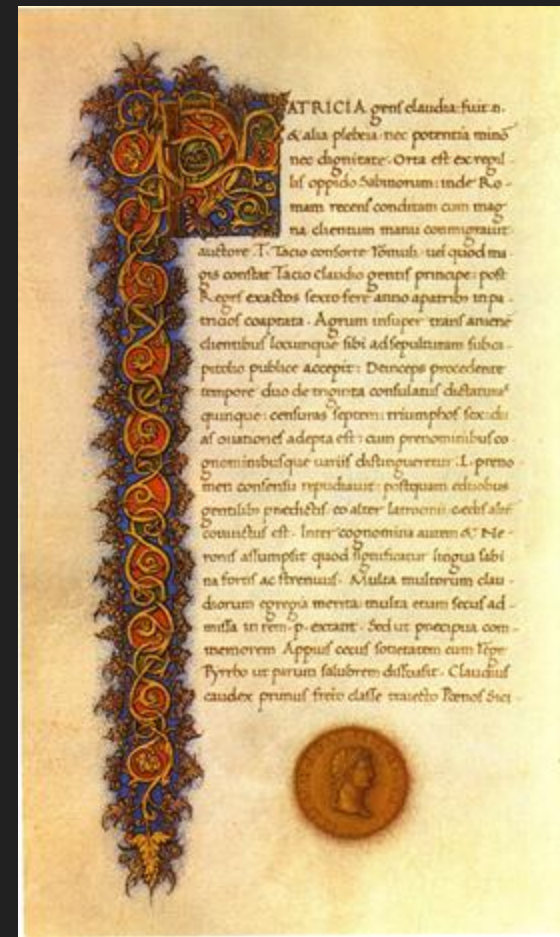 PATRICIA genſ claudia: fuit .n.
& alia plebeia· nec potentia minõ
nec dignitate· Orta eſt ex regil-
liſ oppido Sabinorum: inde Ro-
mam recenſ conditam cum mag
na clientum manu commigrauit
auctore .T. Tacio conſorte Romuli· uel quod ma
giſ conſtat Tacio claudio gentiſ principe: poſt
Regeſ exactoſ ſexto fere anno a patribꝰ in pa-
tricioſ cooptata· Agrum inſuper tranſ anienẽ
clientibuſ locumque ſibi ad ſepulturam ſub ca-
pitolio publice accepit: Deinceps procedente
tempore duo de triginta conſulatuſ dictaturaſ
quinque: cenſuras ſeptem: triumphoſ ſex: du
aſ ouationeſ adepta eſt: cum prenominibuſ co
gnominibuſque uariiſ diſtingueretur .L. preno
men conſenſu repudiauit: poſtquam e duobus
gentilibꝰ praedictiſ
conuictuſ eſt· Inter cognomina autem & Ne-
roniſ aſſumpſit quod ſignificatur lingua ſabi
na fortiſ ac ſtrenuuſ· Multa multorum clau-
diorum egregia merita: multa etiam ſecuſ ad-
miſſa in rem·p· extant· Sed ut praecipua com-
memorem Appiuſ cecuſ ſocietatem cum Rege
Pyrrho ut parum ſalubrem diſſuaſit· Claudiuſ
caudex primuſ freto claſſe traiecto Pœnoſ Sici-